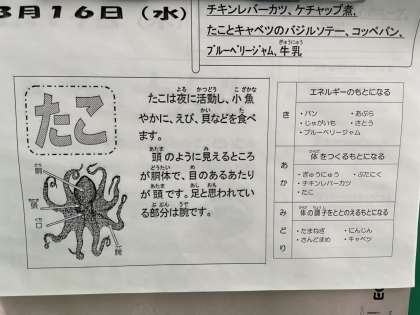 3月16日(水)
チキンレバーカツ、ケチャップ煮、
たことキャベツのバジルソテー、コッペパン、
ブルーベリージャム、牛乳
たこ
たこは夜に活動し、小魚
やかに、えび、貝などを食べ
ます。
頭のように見えるところ
が胴体で、目のあるあたり
が頭です。足と思われてい
る部分は腕です。
胴
頭
口
腕
エネルギーのもとになる
き
・パン ・あぶら
・じゃがいも ・さとう
・ブルーベリージャム
体をつくるもとになる
あか
・ぎゅうにゅう ・ぶたにく
・チキンレバーカツ
・たこ
体の調子をととのえるもとになる
みどり
・たまねぎ ・にんじん
・さんどまめ ・キャベツ